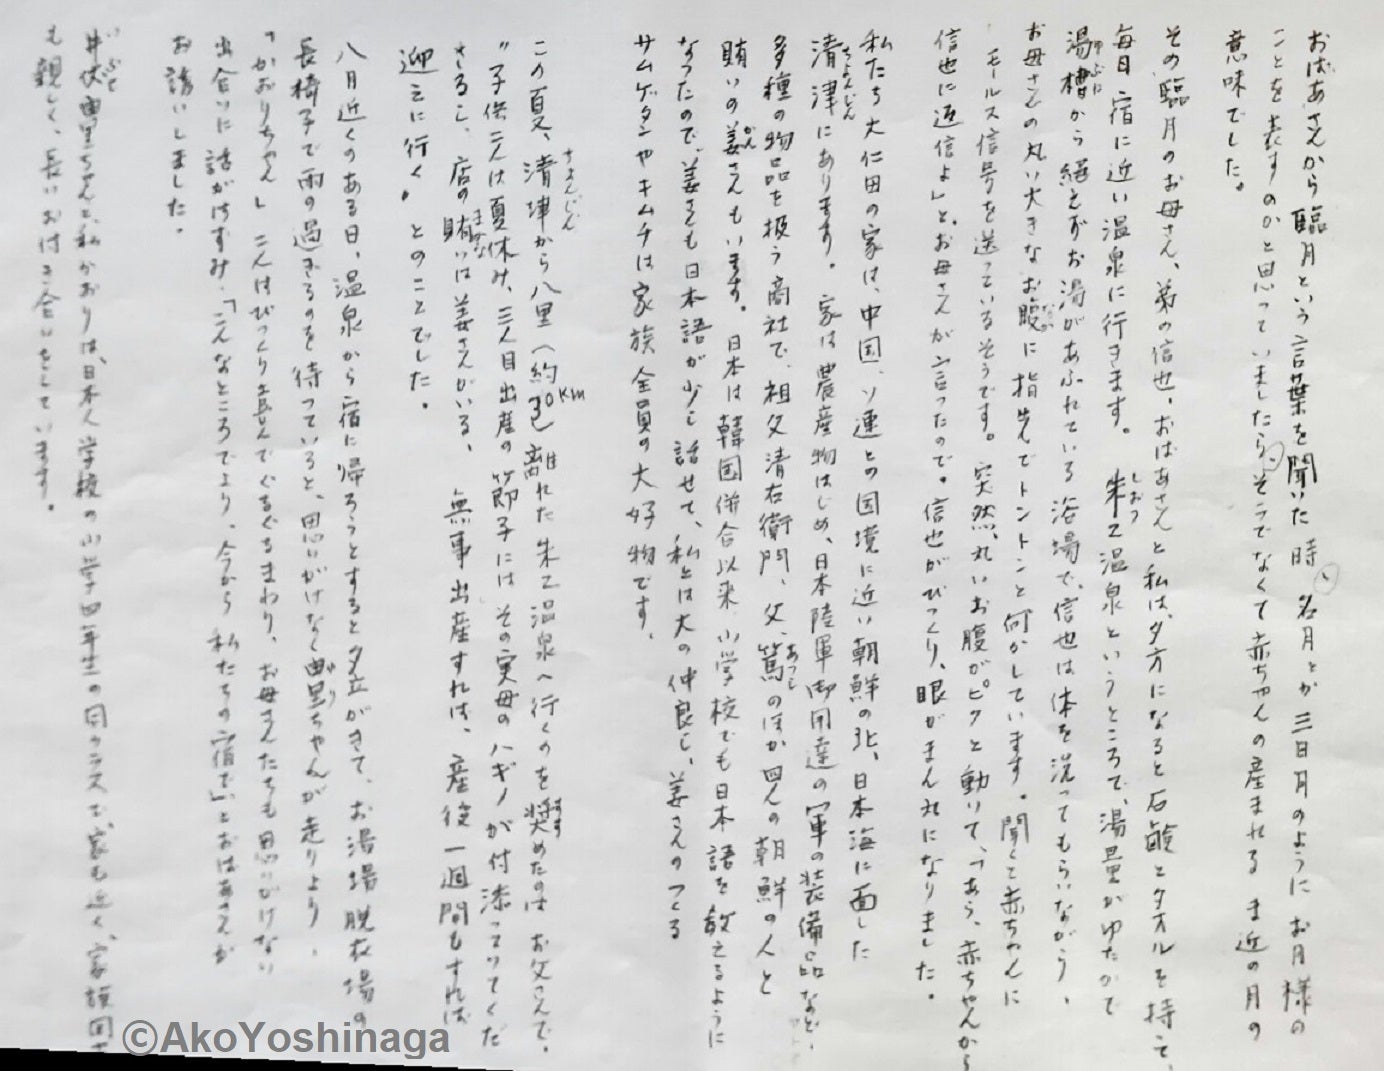 おばあさんから臨月という言葉を聞いた時、名月とか三日月のようにお月様の
ことを表すのかと思っていましたら、そうでなくて赤ちゃんの産まれるま近の月の
意味でした。
その臨月のお母さん、弟の信也、おばあさんと私は、夕方になると石鹸とタオルを持て、
毎日宿に近い温泉に行きます。朱乙温泉というところで、湯量がゆたかで
しおつ
湯槽から絶えずお湯があふれている浴場で、信也は体を洗ってもらいながら、
ゆぶね
お母さんの丸い大きなお腹に指先でトントンと何かしています。聞くと赤ちゃんに
モールス信号を送っているそうです。突然、丸いお腹がピクと動いて、「あら、赤ちゃんから
信也に返信よ」と、お母さんが言ったので。信也がびっくり、眼がまん丸になりました。
私たち大仁田の家は、中国、ソ連との国境に近い朝鮮の北、日本海に面した
清津にあります。家は農産物はじめ、日本陸軍御用達の軍の装備品など、
ちょんじん
多種の物品を扱う商社で、祖父清右衛門、父、篤のほか四人の朝鮮の人と
あつし
賄いの姜さんもいます。日本は韓国併合以来、小学校でも日本語を教えるように
かん
なったので、姜さんも日本語が少し話せて、私とは大の仲良し、姜さんのつくる
サムゲタンやキムチは家族全員の大好物です。
この夏、清津から八里（約30km）離れた朱乙温泉へ行くのを奨めたのはお父さんで、
ちょんじん
すす
"子供二人は夏休み、三人目出産の節子にはその実母のハギノが付添ってくれて
さるし、店の賄いは姜さんがいる、無事出産すれば、産後一週間もすれば
まかな
迎えに行く。とのことでした。
八月近くのある日、温泉から宿に帰ろうとすると夕立がきて、お湯場脱衣場の
長椅子で雨の過ぎるのを待っていると、思いがけなく由里ちゃんが走りより、
ゆり
「かおりちゃん」二人はびっくり喜んでぐるぐるまわり、お母さんたちも思いがけない
出合いに話がはずみ、「こんなところでより、今から私たちの宿で」とおばあさんが
お誘いしました。
井伏由里ちゃんと私かおりは、日本人学校の小学四年生の同クラスで、家も近く、家族同士
いぶせ
も親しく、長いお付き合いをしています。
©AkoYoshinaga